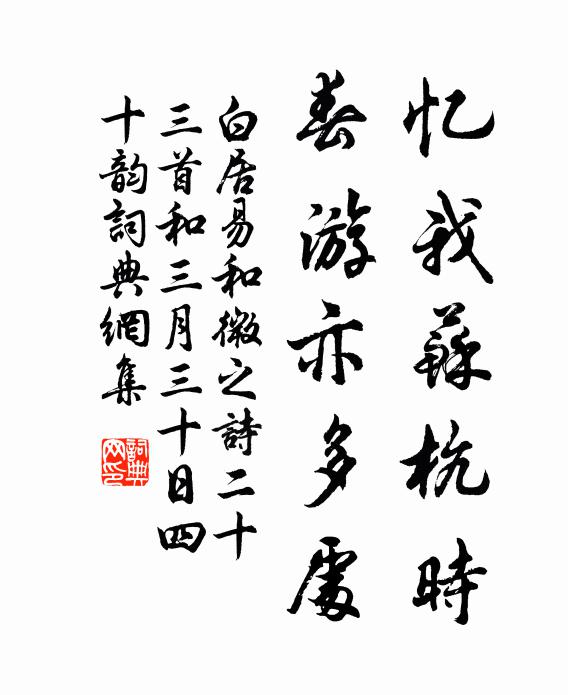 忆我蘇杭時
春游亦多處
白居易和微之詩二十
三首和三月三十日四
十韵詞典網集
詞典
网印